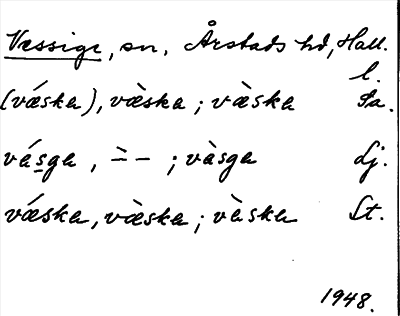 Vessige, sn. Årstads hd, Hall. l.
(vǽska), væ̀ska ; væ̀ska Sa.
vásga, ∸ – ; vàsga Lj.
vǽska, væ̀ska ; væ̀ska St.
1948.